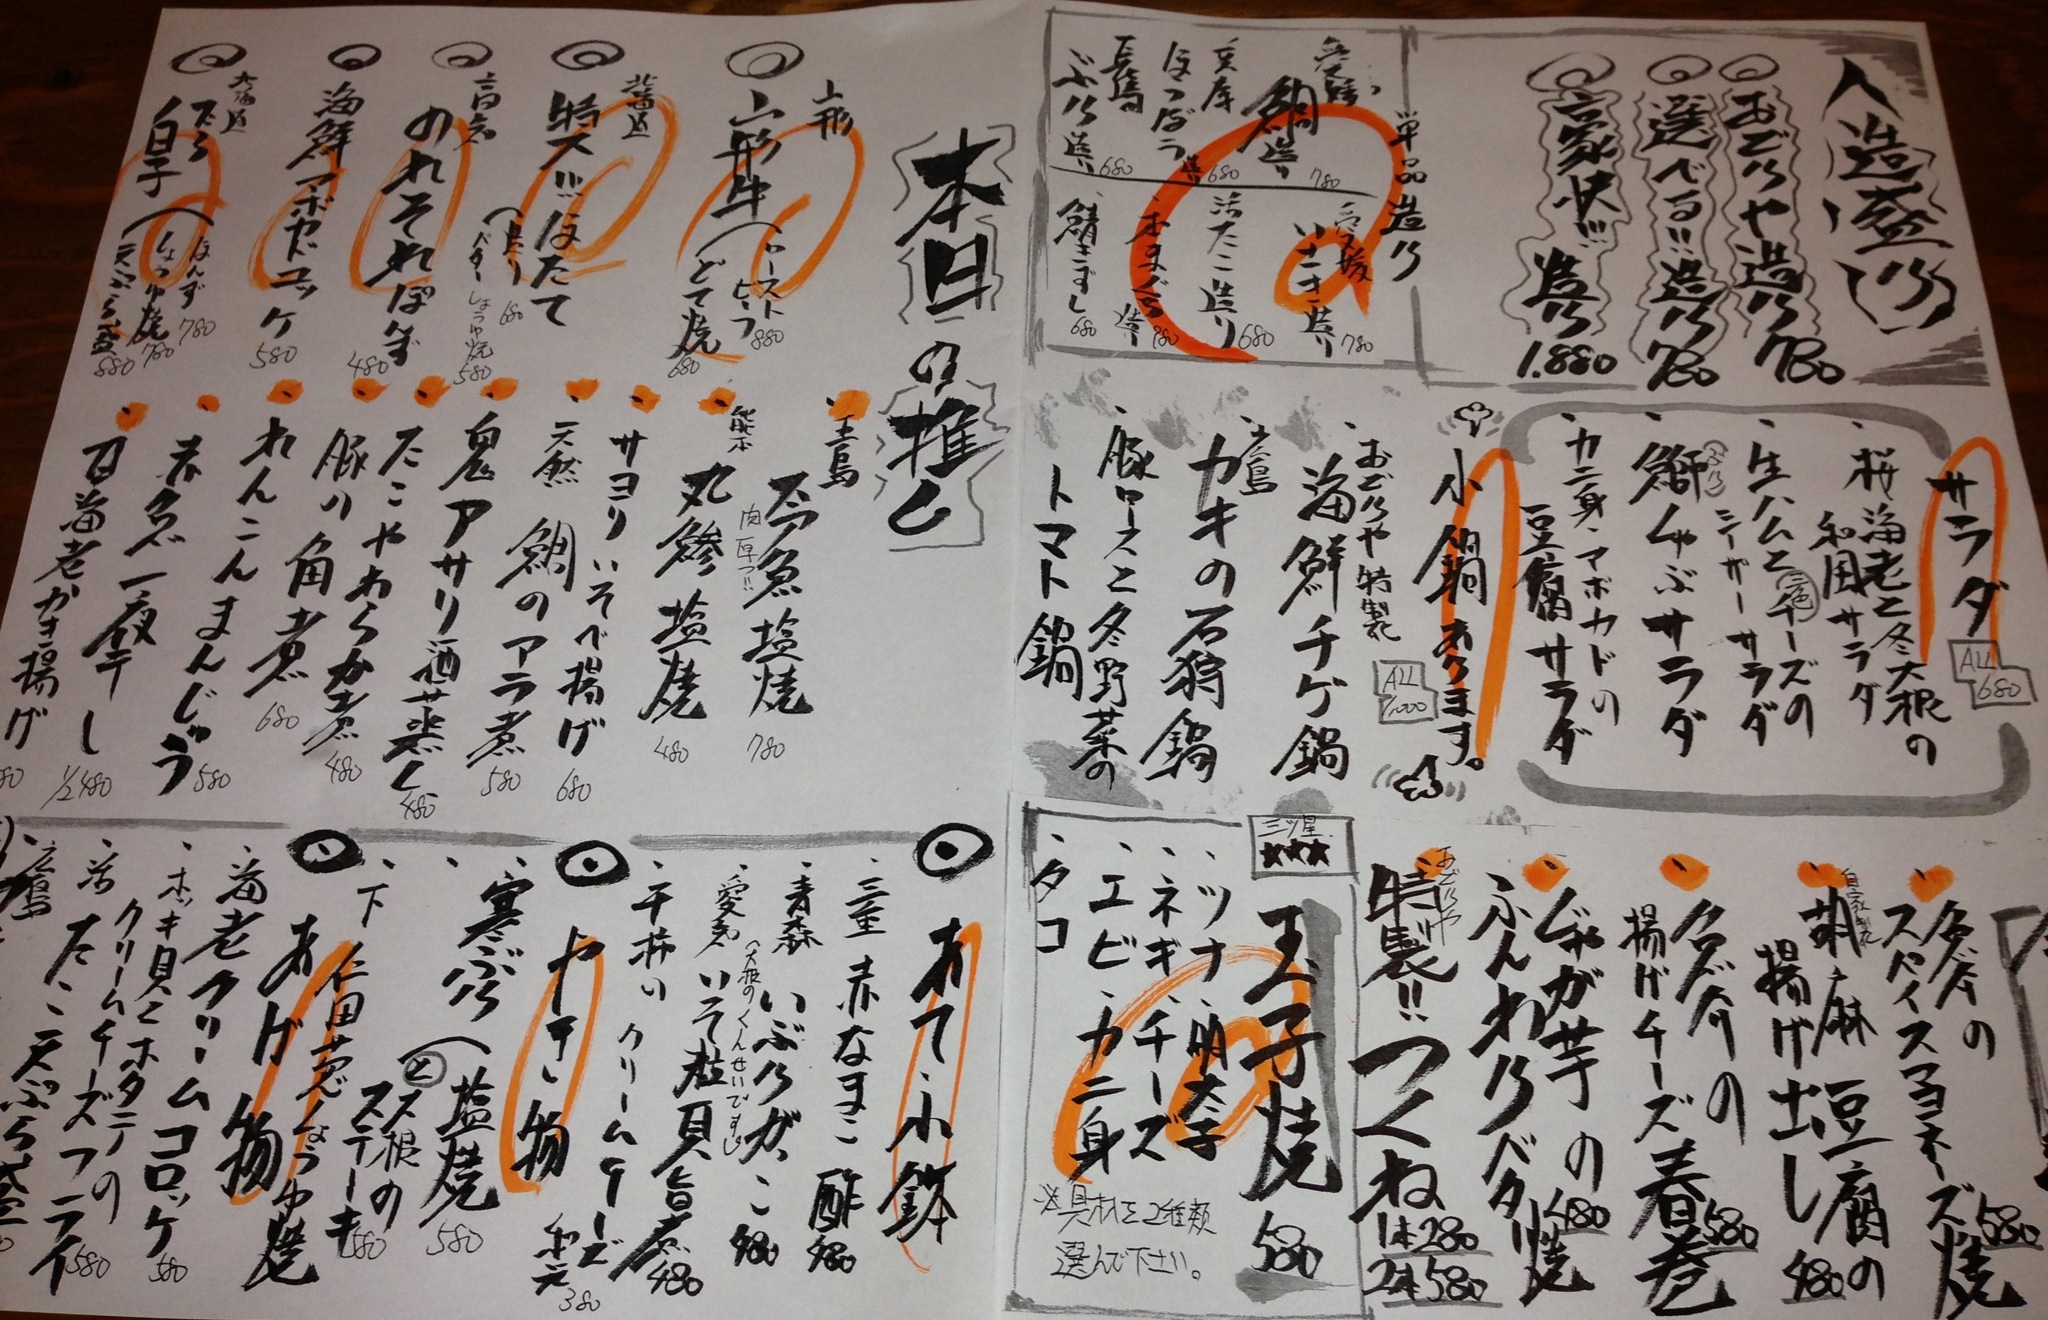 造盛り
おどりや造り 780
選べる!!造り 780
玄界灘!!造り 1.880
単品造り
愛媛 鯛造り 780
兵庫 ほうぼう造り 680
長崎 ぶり造り 680
造り 780
活たこ造り 680
本まぐろ造り 980
鯖きずし 680
サラダ ALL 680
桜海老と冬大根の
和風サラダ
生ハムと三色チーズの
シーザーサラダ
鰤(ぶり)しゃぶサラダ
カニ身・アボカドの
豆腐サラダ
小鍋あります。 ALL 1,000
おどりや特製
海鮮チゲ鍋
広島
カキの石狩鍋
豚ロースと冬野菜の
トマト鍋
スパイスマヨネーズ焼 580
自家製
胡麻豆腐の
揚げ出し 480
揚げチーズ春巻 580
じゃがほ芋の
ふんわりバター焼 480
おどりや
特製!!つくね
1本280
2本580
三ツ星 ★★★
玉子焼 580
・ツナ・明太子
・ネギ・チーズ
・エビ・カニ身
・タコ
※具材を2種類
選んで下さい。
本日の推し
山形
山形牛
ローストビーフ 880
どて焼 680
北海道
特大!!ほたて
造り 680
バターしょうゆ焼 580
高知
のれそれぽん酢 480
海鮮アボカドユッケ 580
北海道
だら白子
ぽんず 780
しょうゆ焼 780
天ぷら盛 880
肉厚っ!! 780
熊本
丸鯵塩焼 480
サヨリいそべ揚げ 680
天然 鯛のアラ煮 580
鬼アサリ酒蒸し 480
たこやわらか煮 480
豚の角煮 680
れんこんまんじゅう 580
赤魚一夜干し 1/2 480
海老かき揚げ
あて・小鉢
三重 赤なまこ酢 480
青森 いぶりがっこ 480
(大根のくんせいです)
愛知 いそ粒貝旨煮 480
干柿のクリームチーズ和え 380
やき物
寒ぶり塩焼 580
大根のステーキ 580
下仁田葱しょうゆ焼
あげ物
海老クリームコロッケ 580
ホッキ貝とホタテの
クリームチーズフライ 580
活たこ天ぷら盛
広島